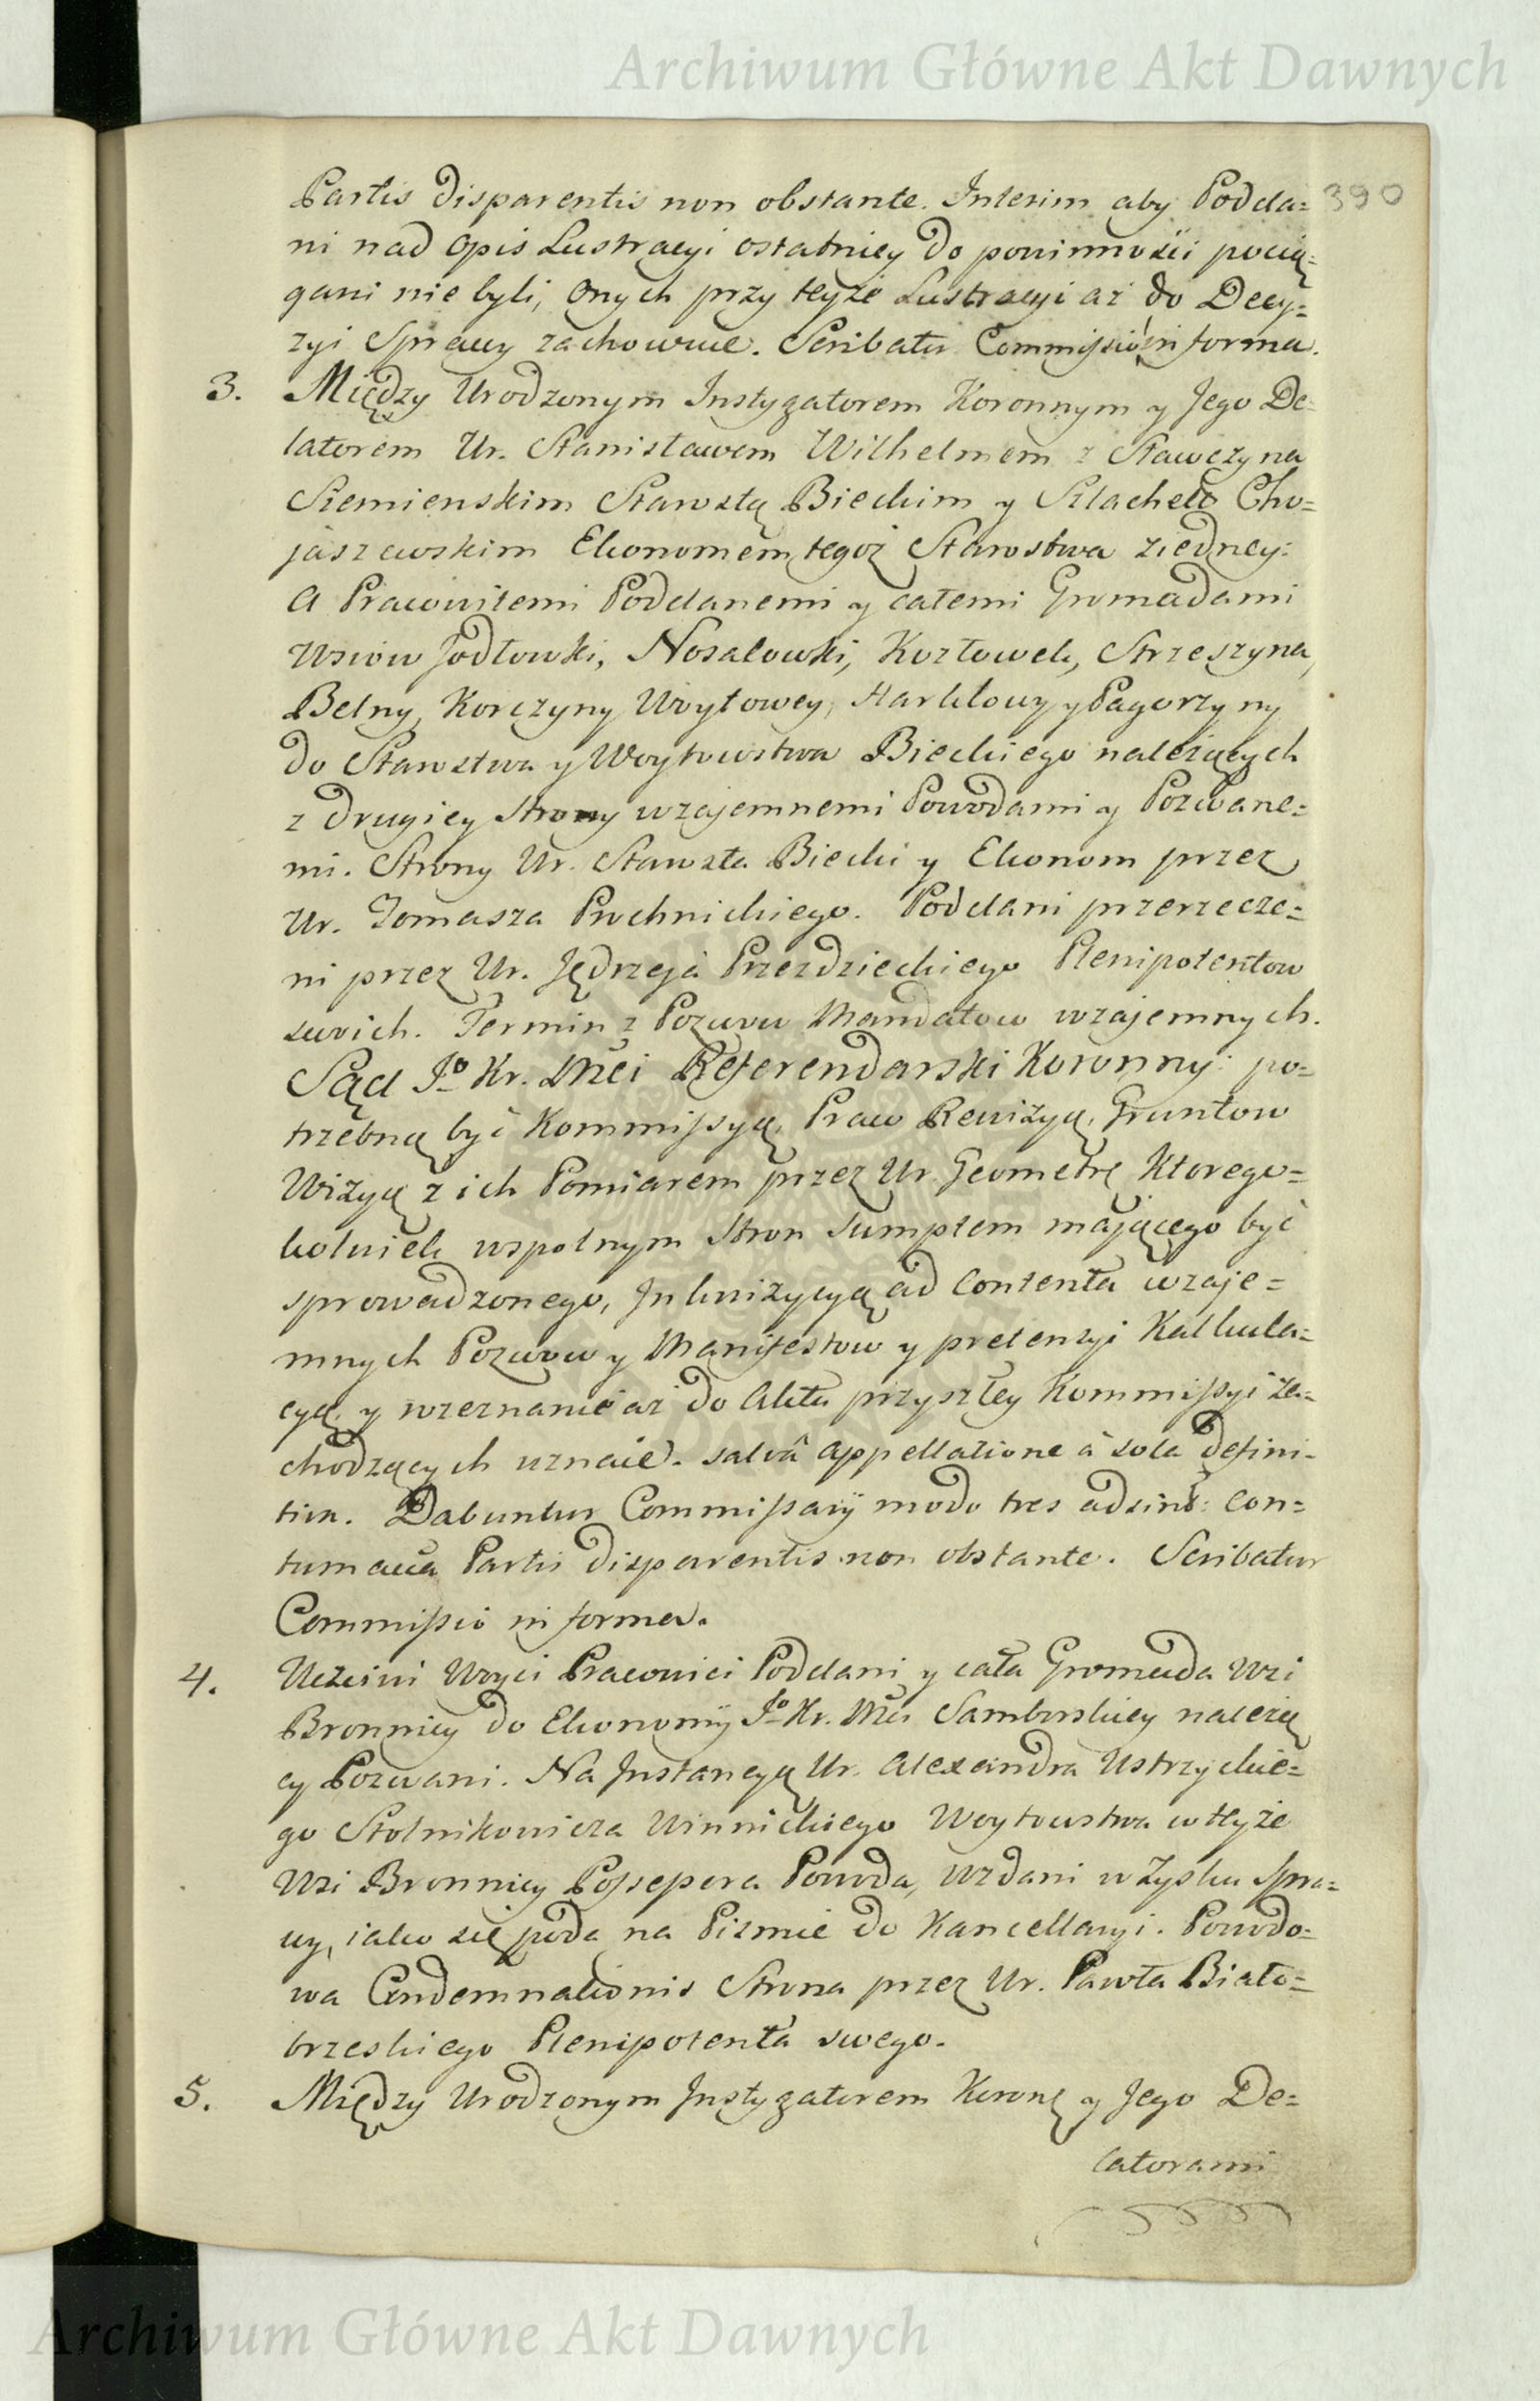 Archiwum Główne Akt Dawnych
390
Partis disparentis non obstante. Interim aby Podda=
ni nad opis Lustracyi ostatniey do powinności pocią=
gani nie byli, onych przy teyże Lustracyi aż do Decy=
zyi Sprawy zachowuie. Scribatur Commissio in forma.
3. Między Urodzonym Instygatorem Koronnym y Jego De=
latorem Ur. Stanisławem Wilhelmem z Sławczyna
Siemienskim Starostą Bieckim y Szlachet Cho=
jaszewskim Ekonomem tegoż Starostwa ziedney:
A Pracowitemi Poddanemi y całemi Gromadami
Wsiow Jodłowki, Nosalowki, Kozłowek, Strzeszyna,
Belny, Korczyny Woytowey, Harklowy y Pagorzyny
do Starostwa y Woytowstwa Bieckiego należących
z drugiey strony wzajemnemi Powodami y Pozwane=
mi. Strony Ur. Starosta Biecki y Ekonom przez
Ur. Tomasza Prochnickiego. Poddani przerzecze=
ni przez Ur. Jędrzeja Przezdzieckiego Plenipotentow
swoich. Termin z Pozwu Mandatow wzajemnych.
Sąd Jo Kr. Mci Referendarski Koronny: po=
trzebną być Kommissyą, Praw Rewizyą, Gruntow
Wizyą z ich Pomiarem przez Ur Geometrę Ktorego=
kolwiek wspolnym stron sumptem mającego być
sprowadzonego, Inkwizycyą ad contenta wzaje=
mnych Pozwow y Manifestow y pretensyi Kalkula=
cyą, y wzeznanie aż do Aktu przyszłey Kommissyi za=
chodzących uznaie. salvâ appellatione à sola defini=
tiva. Dabuntur Commissarÿ modo tres adsint: con=
tumacia Partis disparentis non obstante. Scribatur
Commissio in forma.
4. Uczciwi Woyci Pracowici Poddani y cała Gromada Wsi
Bronnicy do Ekonomÿ Jo Kr. Mci Samborskiey należą
cy Pozwani. Na Instancyą Ur. Alexandra Ustrzyckie=
go Stolnikowicza Winnickiego Woytowstwa w teyże
Wsi Bronnicy Possessora Powoda, wzdani w Zysku Spra=
wy, iako się poda na Pismie do Kancellaryi. Powodo=
wa Condemnationis Strona przez Ur. Pawła Biało=
brzeskiego Plenipotenta swego.
5. Między Urodzonym Instygatorem Koronę y Jego De=
latorami
Archiwum Główne Akt Dawnych